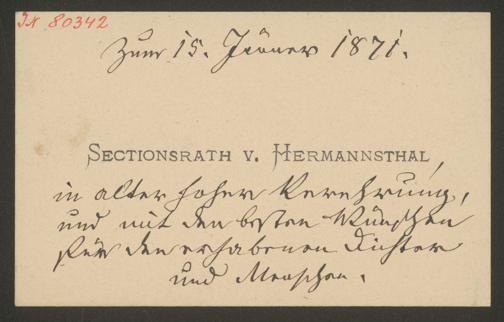 IN 80342
Zum 15. Jänner 1871.
SECTIONSRATH V. HERMANNSTHAL,
in alter hoher Verehrung,
und mit den besten Wünschen
für den erhabenen Dichter
und Menschen.